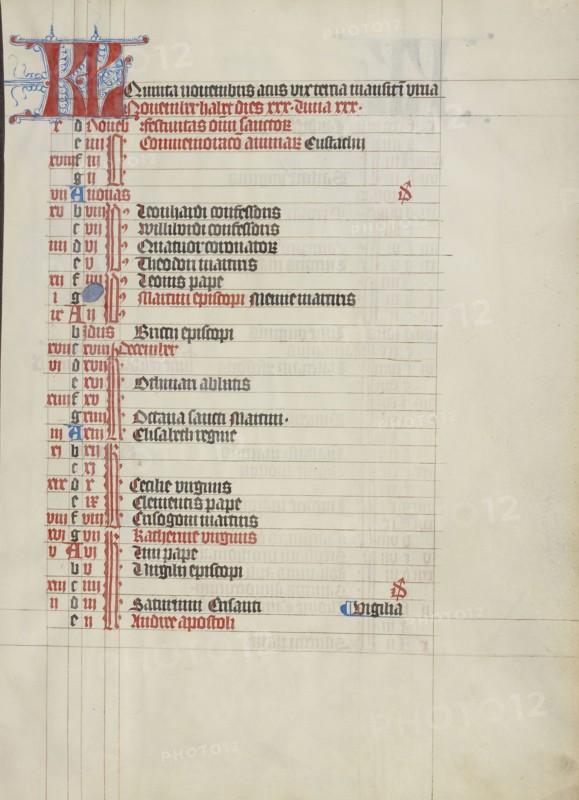 KL Quinta nouembris acus vix tertia mansit i vrna
Nouember habet dies xxx. Luna xxx.
d Noueb Festiuitas oim sanctor
e iiii Commemoraco aiar Eustachii
xviii f iii
g ii
vii A nonas
xv b viii Leonhardi confessoris
c vii Willibrdi confessoris
iiii d vi Quatuor coronator
e v Theodori martiris
xii f iiii Leonis pape
i g Martini episcopi Menne martiris
ix A ii
b jdus Briccii episcopi
xvii c xviii December
vi d xvii
e xvi Othmari abbatis
xiiii f xv
g xiiii Octaua sancti Martini.
iii A xiii Elisabeth regine
xi b xii
c xi
xix d x Cecilie virginis
e ix Clementis pape
viii f viii Crisogoni martiris
xvi g vii Katherine virginis
v A vi Lini pape
b v Virgilii episcopi
xiii c iiii
ii d iii Saturnini Crisanti Vigilia
e ii Andree apostoli
PHOTO12